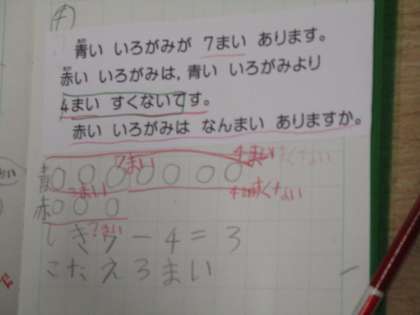 (イ)
青い いろがみが 7まい あります。
赤い いろがみは、青い いろがみより
4まい すくないです。
赤い いろがみは なんまい ありますか。
7まい 4まい すくない
青
?まい 4まい すくない
赤
?まい
しき7-4=3
こたえ3まい